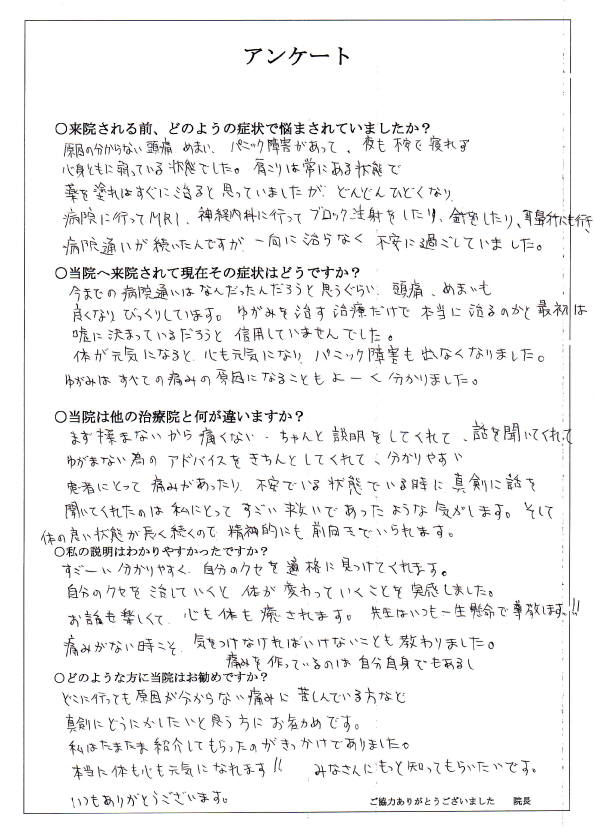 アンケート
○来院される前、どのようの症状で悩まされていましたか？
原因の分からない頭痛 めまい、パニック障害があって、夜も不安で寝れず
心身ともに弱っている状態でした。肩こりは常にある状態で
薬を塗ればすぐに治ると思っていましたが、どんどんひどくなり、
病院に行ってMRI、神経内科に行ってブロック注射をしたり、針をしたり、耳鼻科にも行き
病院通いが続いたんですが、一向に治らなく 不安に過ごしていました。
○当院へ来院されて現在その症状はどうですか？
今までの病院通いはなんだったんだろうと思うぐらい、頭痛、めまいも
良くなりびっくりしています。ゆがみを治す治療だけで本当に治るのかと最初は
嘘に決まっているだろうと信用していませんでした。
体が元気になると、心も元気になり、パニック障害も出なくなりました。
ゆがみはすべての痛みの原因になることもよーく分かりました。
○当院は他の治療院と何が違いますか？
まず揉まないから痛くない・ちゃんと説明をしてくれて、話を聞いてくれて
ゆがまない為のアドバイスをきちんとしてくれて、分かりやすい
患者にとって痛みがあったり、不安でいる状態でいる時に真剣に話を
聞いてくれたのは私にとってすごい救いであったような気がします。そして
体の良い状態が長く続くので精神的にも前向きでいられます。
○私の説明はわかりやすかったですか？
すごーい分かりやすく、自分のクセを適格に見つけてくれます。
自分のクセを治していくと体が変わっていくことを実感しました。
お話も楽しくて、心も体も癒されます。先生はいつも一生懸命で尊敬します!!
痛みがない時こそ、気をつけなければいけないことも教わりました。
痛みを作っているのは自分自身でもあるし
○どのような方に当院はお勧めですか？
どこに行っても原因が分からない痛みに苦しんでいる方など
真剣にどうにかしたいと思う方にお勧めです。
私はたまたま紹介してもらったのがきっかけでありました。
本当に体も心も元気になれます!! みなさんにもっと知ってもらいたいです。
いつもありがとうございます。
ご協力ありがとうございました 院長